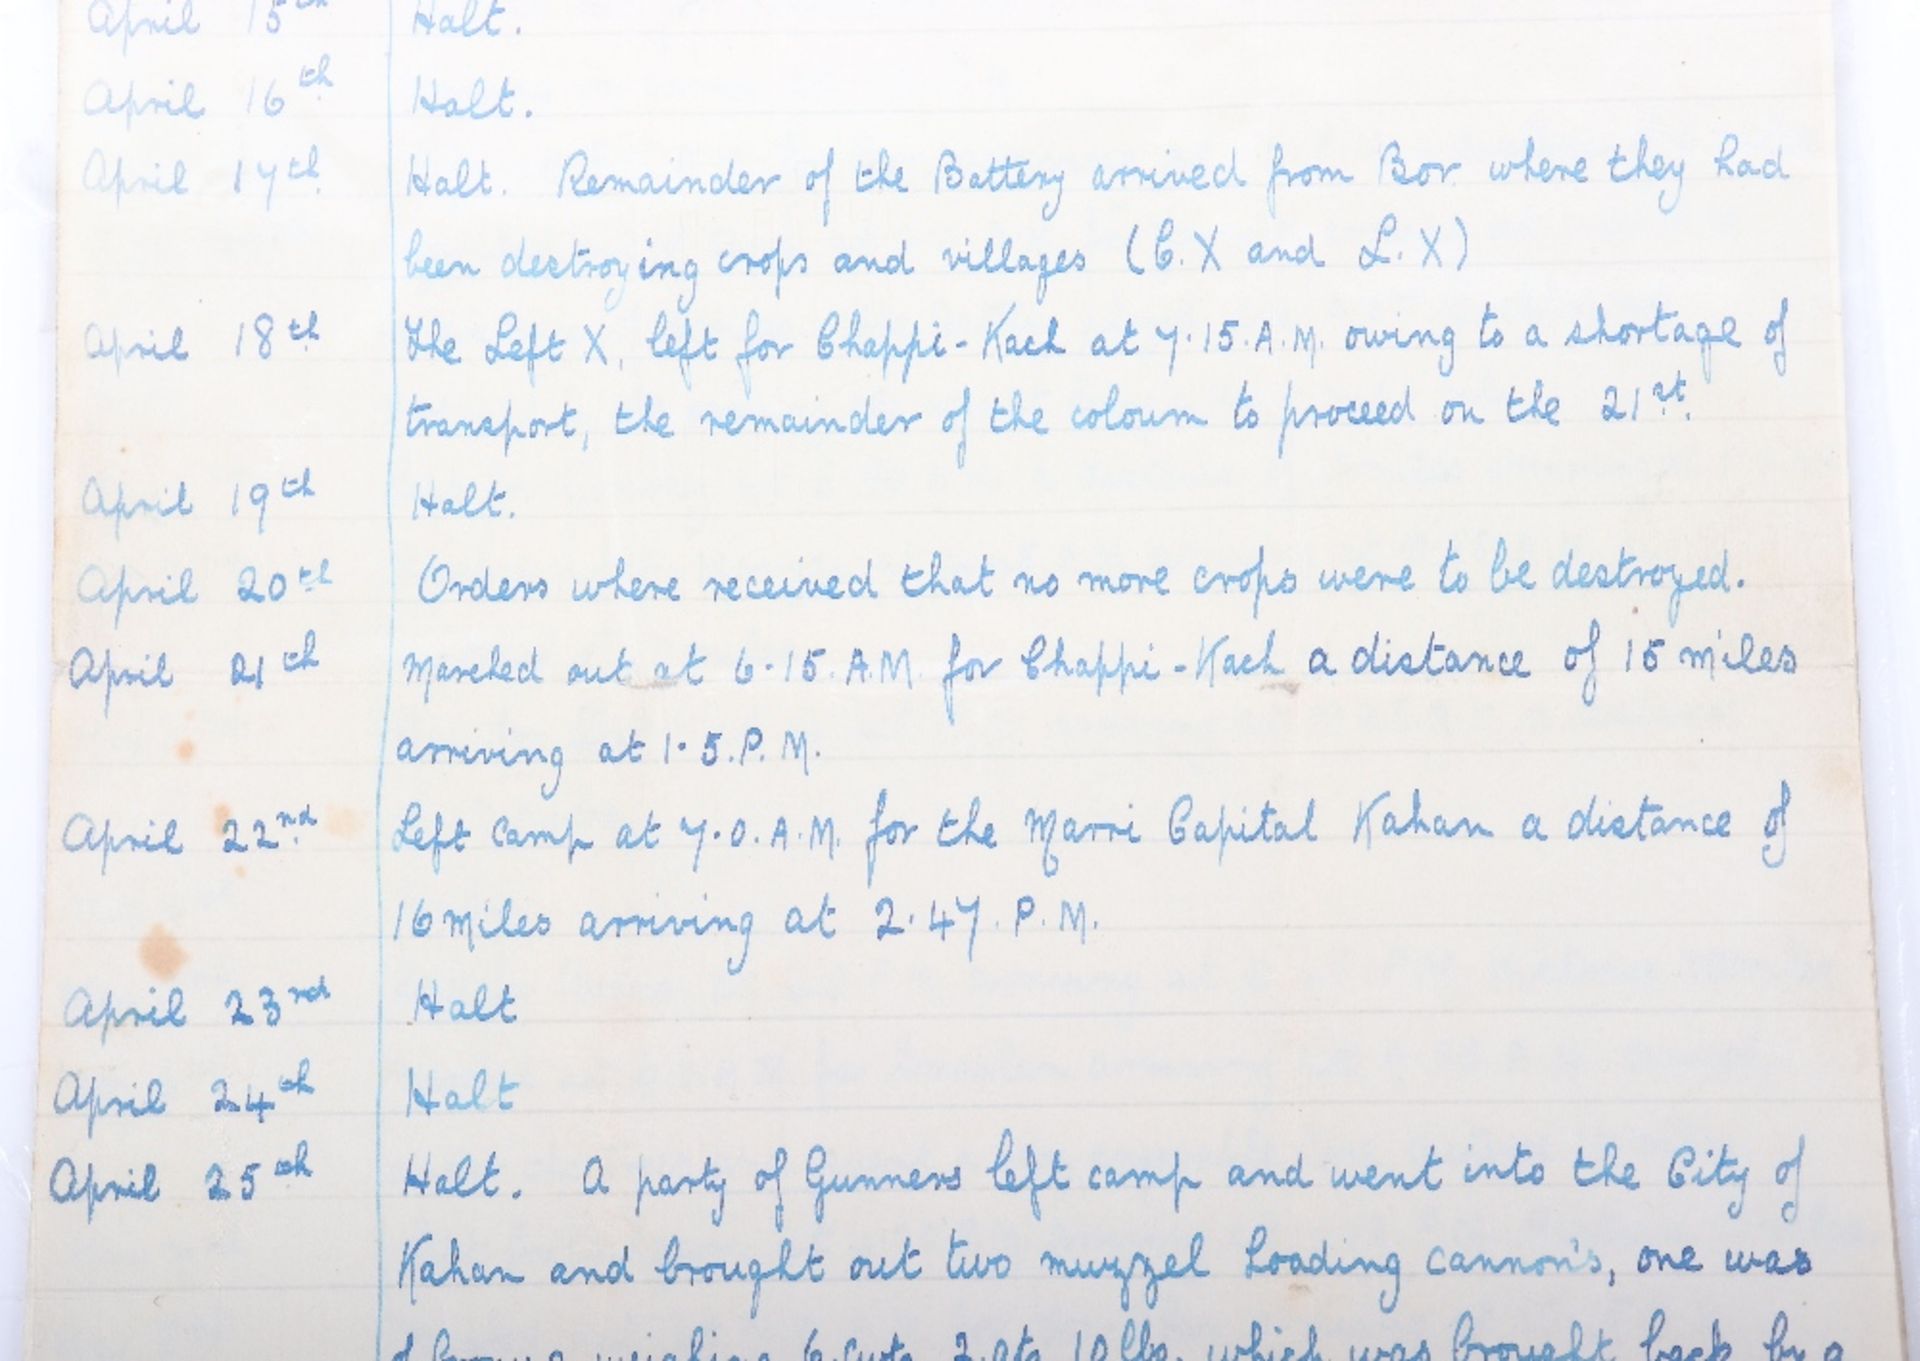 April 15th Halt.
April 16th Halt.
April 17th Halt. Remainder of the Battery arrived from Bor where they had
been destroying crops and villages (C.X and L.X)
April 18th The Left X, left for Chappi-Kach at 7.15.A.M. owing to a shortage of
transport, the remainder of the coloum to proceed on the 21st.
April 19th Halt.
April 20th Orders where received that no more crops were to be destroyed.
April 21th Marched out at 6.15.A.M. for Chappi-Kach a distance of 15 miles
arriving at 1.5.P.M.
April 22nd Left camp at 7.0.A.M. for the Marri Capital Kahan a distance of
16 miles arriving at 2.47.P.M.
April 23rd Halt
April 24th Halt
April 25th Halt. A party of Gunners left camp and went into the City of
Kahan and brought out two muzzel Loading cannon's, one was
of weighing 6.cwts 2.qts 10lbs. which was brought back by a